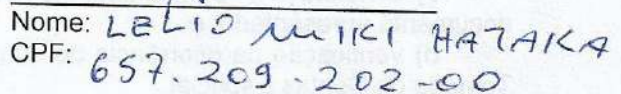 Nome: LELIO MIKI HATAKA
CPF: 657.209.202-00